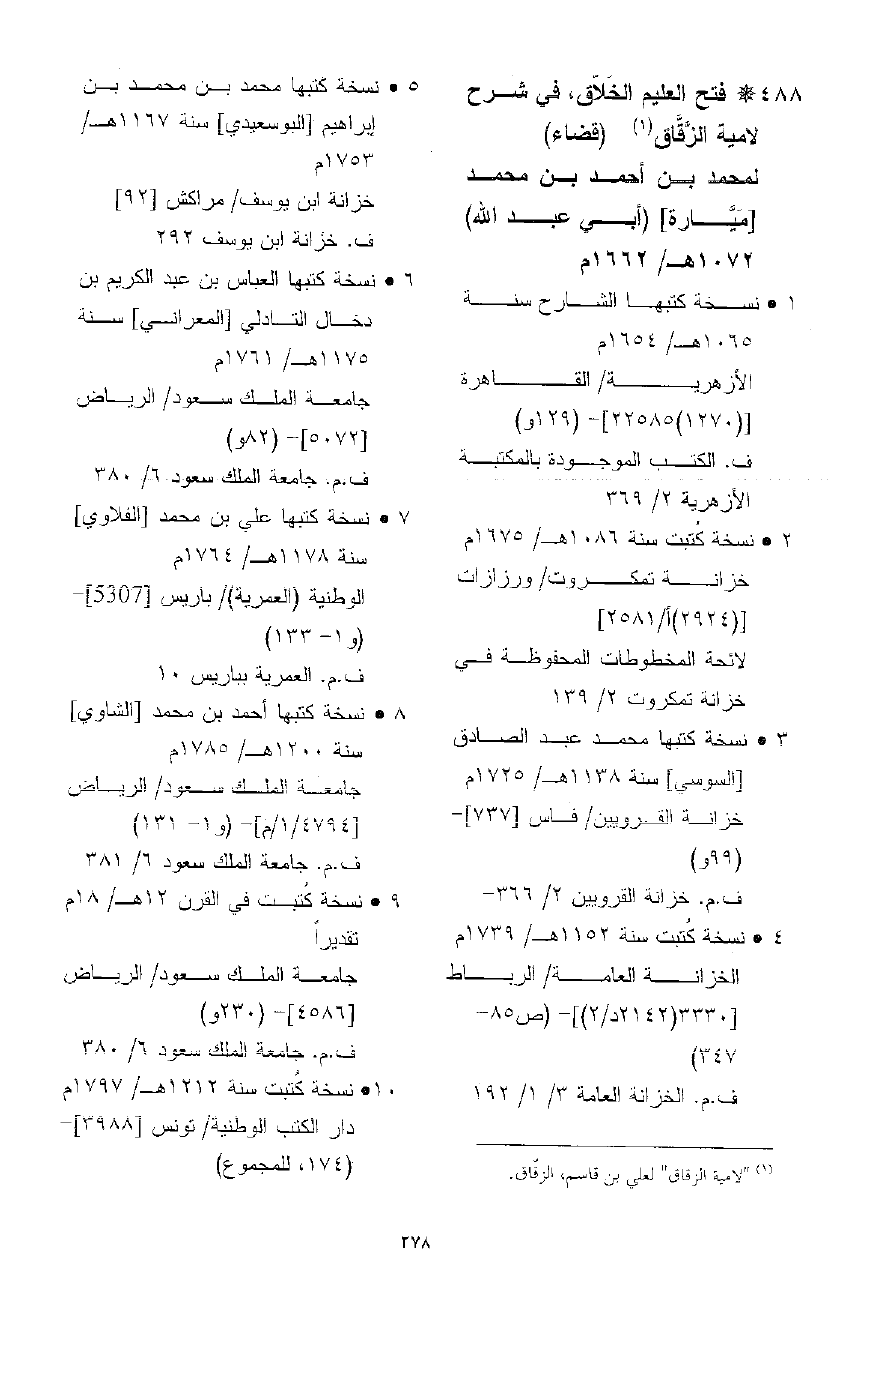 ٤٨٨ ❋ فتح العليم الخَلاّق، في شرح
لامية الزَّقَّاق(١) (قضاء)
لمحمد بن أحمد بن محمد
[مَيَّارة] (أبي عبد الله)
١٠٧٢هـ/ ١٦٦٢م
١ • نسخة كتبها الشارح سنة
١٠٦٥هـ/ ١٦٥٤م
الأزهرية/ القاهرة
[(١٢٧٠)٢٢٥٨٥]- (١٢٩و)
ف. الكتب الموجودة بالمكتبة
الأزهرية ٢/ ٣٦٩
٢ • نسخة كُتبت سنة ١٠٨٦هـ/ ١٦٧٥م
خزانة تمكروت/ ورزازات
[(٢٩٢٤)أ/٢٥٨١]
لائحة المخطوطات المحفوظة في
خزانة تمكروت ٢/ ١٣٩
٣ • نسخة كتبها محمد عبد الصادق
[السوسي] سنة ١١٣٨هـ/ ١٧٢٥م
خزانة القرويين/ فاس [٧٣٧]-
(٩٩و)
ف.م. خزانة القرويين ٢/ ٣٦٦-
٤ • نسخة كُتبت سنة ١١٥٢هـ/ ١٧٣٩م
الخزانة العامة/ الرباط
[٣٣٣٠(٢١٤٢د/٢)]- (ص٨٥-
٣٤٧)
ف.م. الخزانة العامة ٣/ ١/ ١٩٢
(١) "لامية الزقاق" لعلي بن قاسم، الزقّاق.
٥ • نسخة كتبها محمد بن محمد بن
إبراهيم [البوسعيدي] سنة ١١٦٧هـ/
١٧٥٣م
خزانة ابن يوسف/ مراكش [٩٢]
ف. خزانة ابن يوسف ٢٩٢
٦ • نسخة كتبها العباس بن عبد الكريم بن
دخال التادلي [المعراني] سنة
١١٧٥هـ/ ١٧٦١م
جامعة الملك سعود/ الرياض
[٥٠٧٢]- (٨٢و)
ف.م. جامعة الملك سعود ٦/ ٣٨٠
٧ • نسخة كتبها علي بن محمد [الفلاوي]
سنة ١١٧٨هـ/ ١٧٦٤م
الوطنية (العمرية)/ باريس [5307]-
(و١- ١٣٣)
ف.م. العمرية بباريس ١٠
٨ • نسخة كتبها أحمد بن محمد [الشاوي]
سنة ١٢٠٠هـ/ ١٧٨٥م
جامعة الملك سعود/ الرياض
[٤٧٩٤/١/م]- (و١- ١٣١)
ف.م. جامعة الملك سعود ٦/ ٣٨١
٩ • نسخة كُتبت في القرن ١٢هـ/ ١٨م
تقديراً
جامعة الملك سعود/ الرياض
[٤٥٨٦]- (٢٣٠و)
ف.م. جامعة الملك سعود ٦/ ٣٨٠
١٠• نسخة كُتبت سنة ١٢١٢هـ/ ١٧٩٧م
دار الكتب الوطنية/ تونس [٣٩٨٨]-
(١٧٤، للمجموع)
٢٧٨